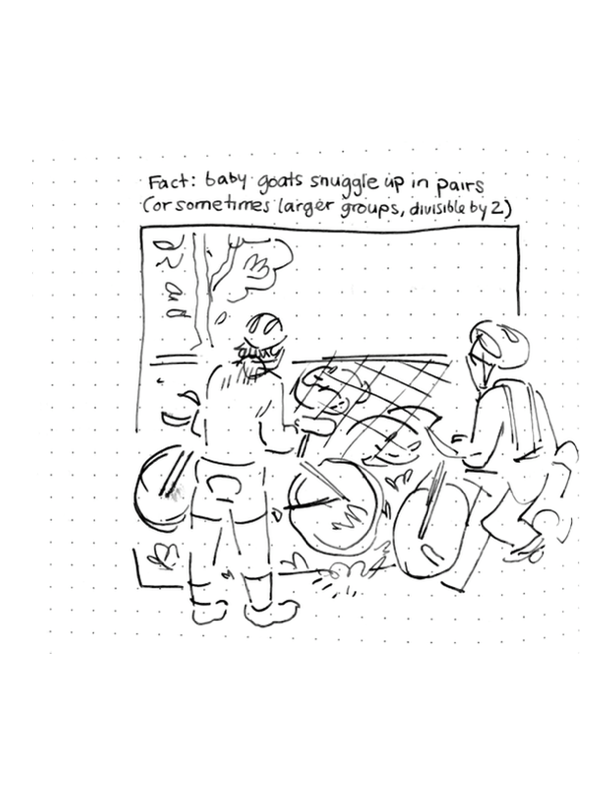 Fact: baby goats snuggle up in pairs
(or sometimes larger groups, divisible by 2)